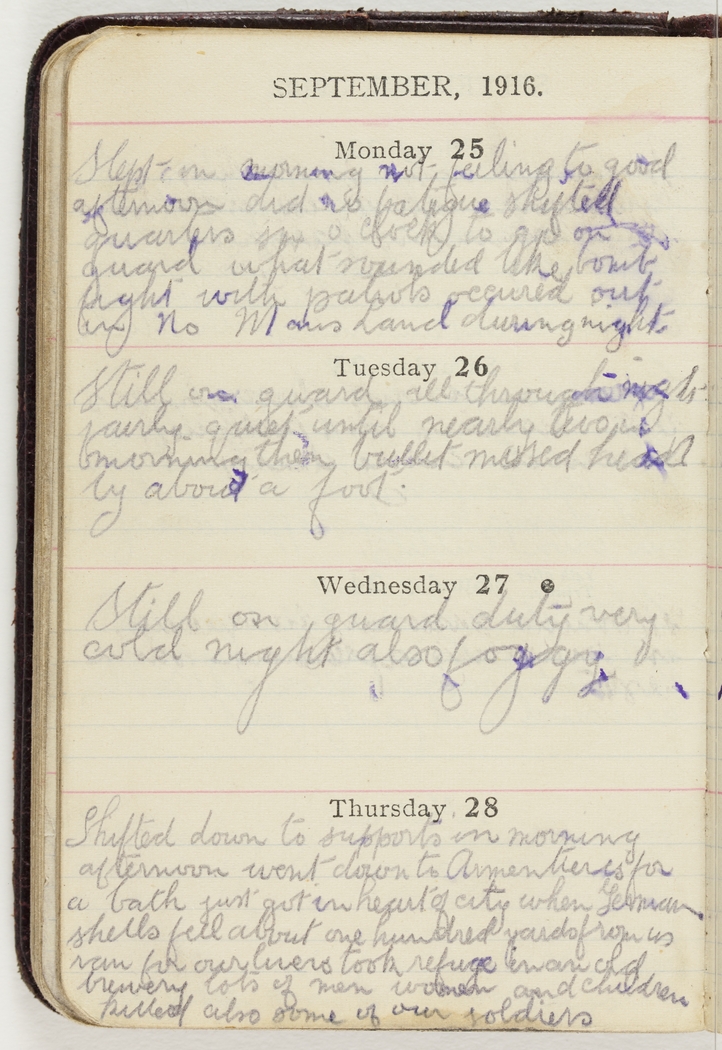 SEPTEMBER, 1916.
Monday 25
Slept in morning not feeling to good
afternoon did no fatigue shifted
quarters six o clock to go on
guard what sounded like bomb
fight with patrols occured out
in No Mans Land during night.
Tuesday 26
Still on guard all through night
fairly quiet until nearly two in
morning then bullet missed head
by about a foot.
Wednesday 27
Still on guard duty very
cold night also foggy
Thursday 28
Shifted down to supports in morning
afternoon went down to Armentieres for
a bath just got in heart of city when German
shells fell about one hundred yards from us
ran for our lives took refuge in an old
brewery lots of men women and children
killed also some of our soldiers